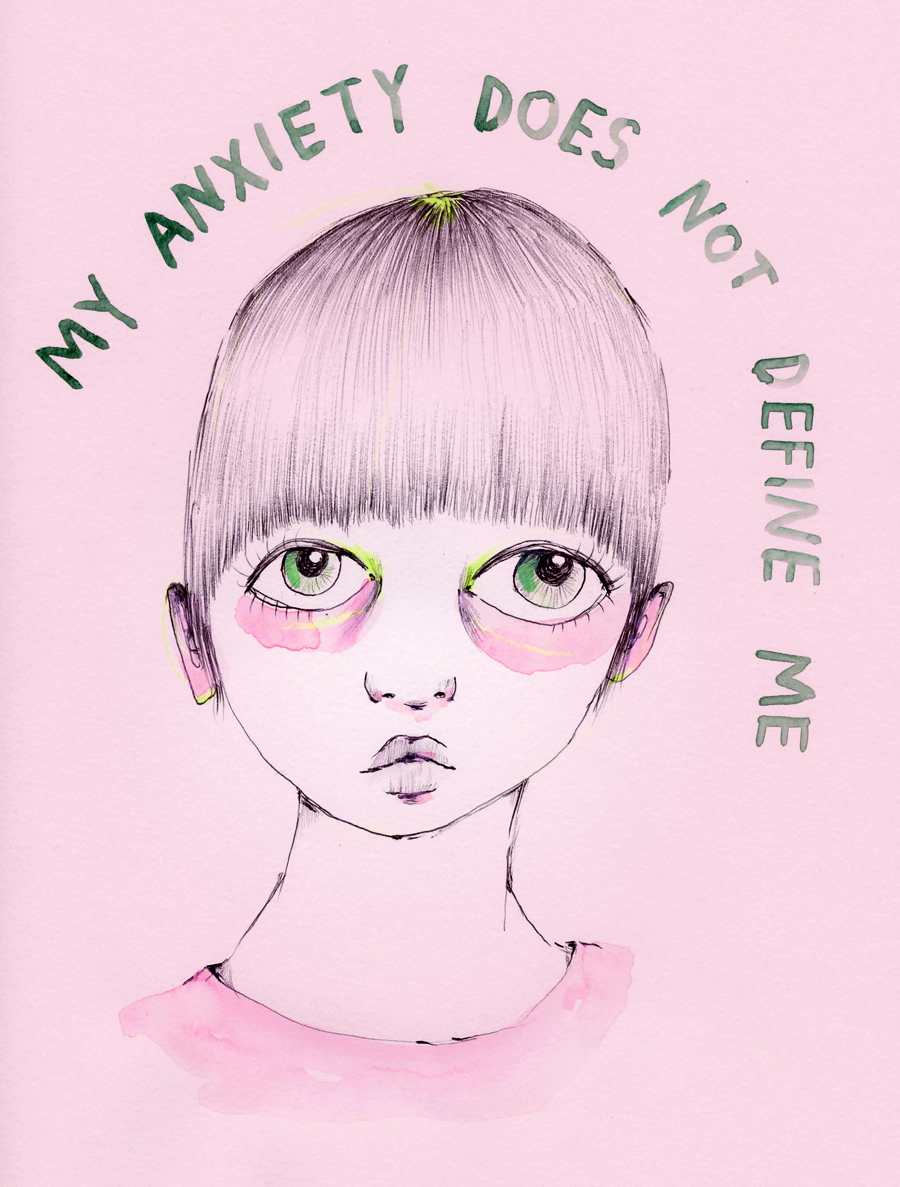 MY ANXIETY DOES NOT DEFINE ME